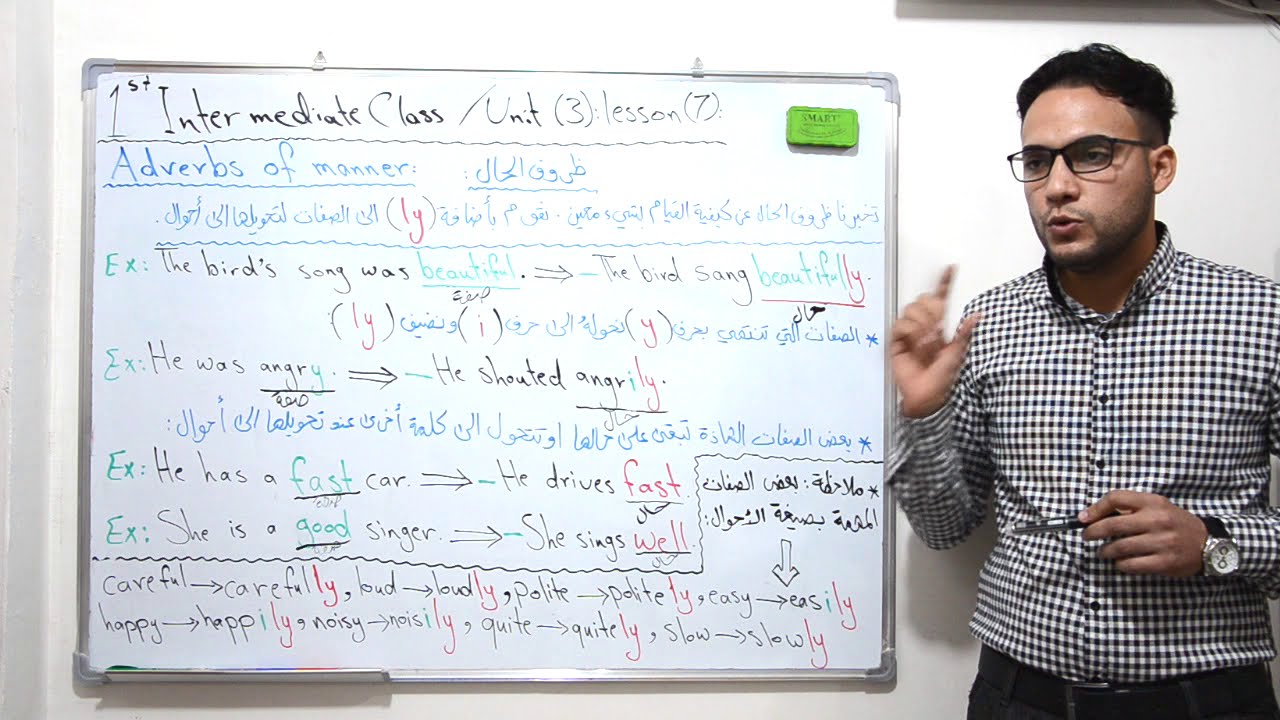 1st Intermediate Class / Unit (3): lesson (7):
SMART
Adverbs of manner: ظروف الحال :
تخبرنا ظروف الحال عن كيفية القيام بشيء معين . نقوم بأضافة (ly) الى الصفات لتحويلها الى أحوال .
Ex: The bird's song was beautiful. ⇒ – The bird sang beautifully.
صفة حال
* الصفات التي تنتهي بحرف (y) نحوله الى حرف (i) ونضيف (ly):
Ex: He was angry. ⇒ – He shouted angrily.
صفة حال
* بعض الصفات الشاذة تبقى على حالها او تتحول الى كلمة أخرى عند تحويلها الى أحوال :
Ex: He has a fast car. ⇒ – He drives fast.
صفة حال
Ex: She is a good singer. ⇒ – She sings well.
صفة حال
* ملاحظة : بعض الصفات
المهمة بصيغة الأحوال :
careful → carefully, loud → loudly, polite → politely, easy → easily
happy → happily, noisy → noisily, quite → quitely, slow → slowly